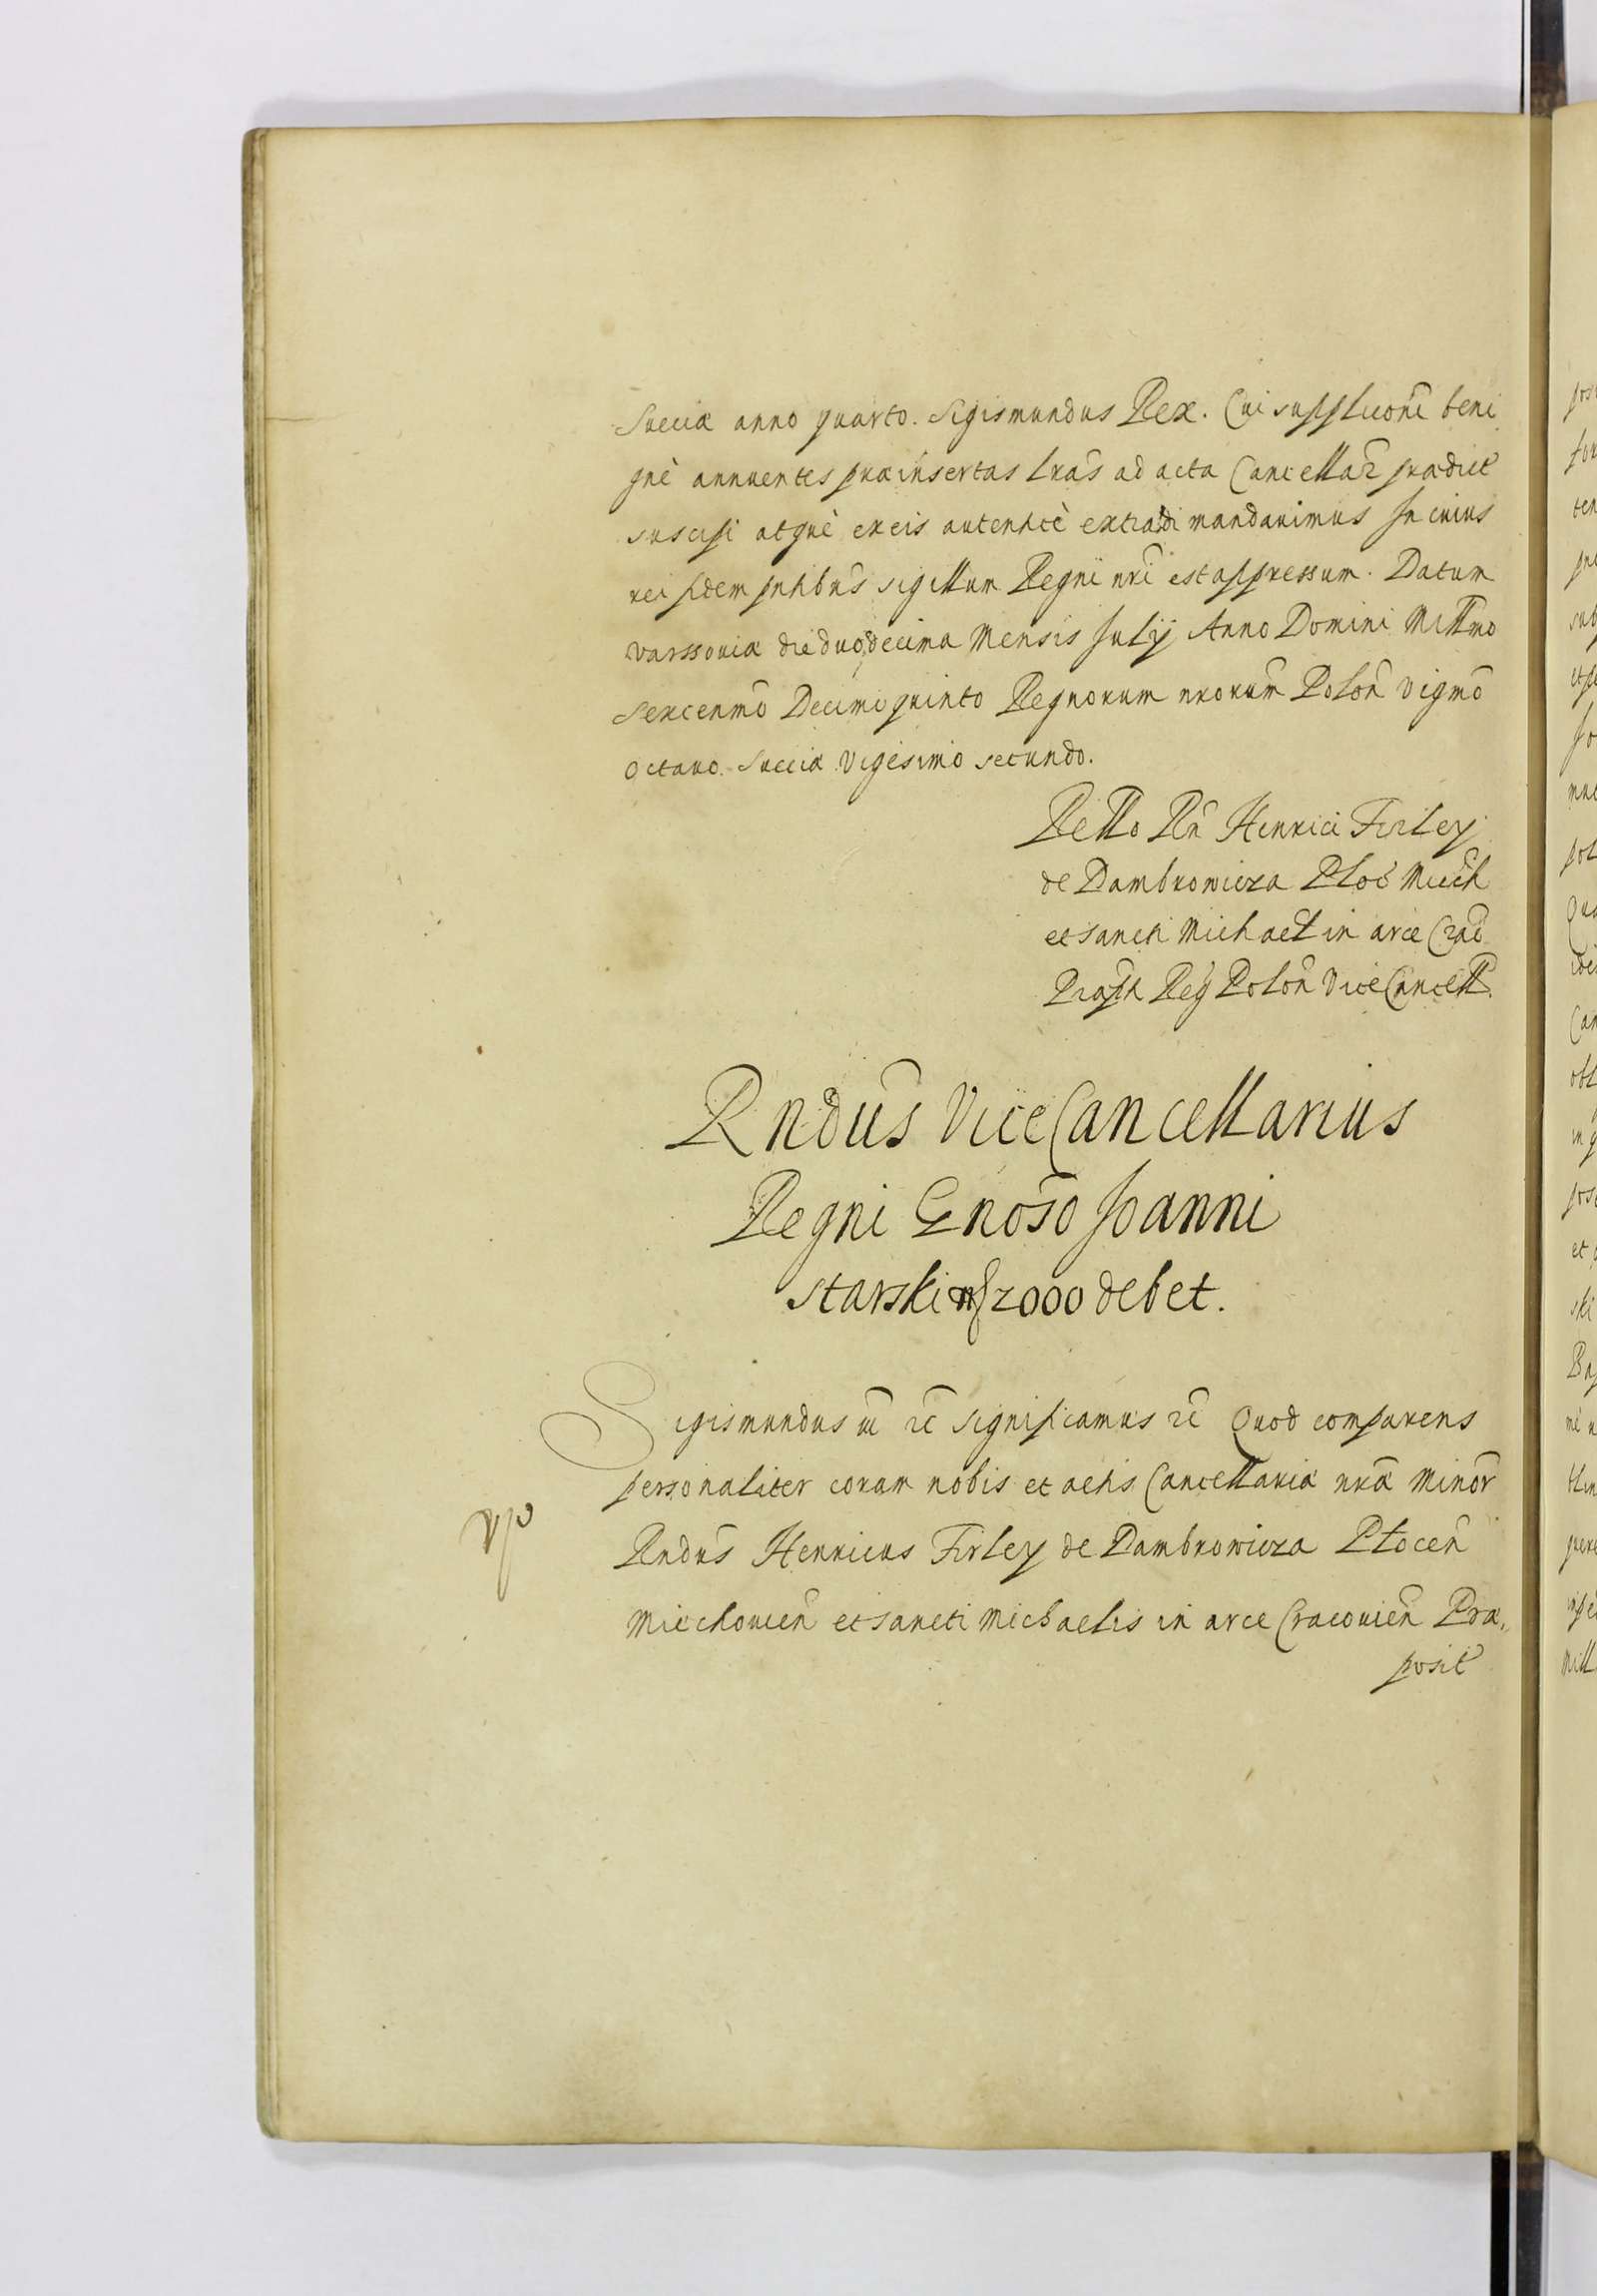 Sueciæ anno quarto. Sigismundus Rex. Cui supplicõni beni
gnè annuentes præinsertas lrãs ad acta Cancellar prædict
suscipi atquè ex eis autenticè extradi mandauimus In cuius
rei fidem pntibus sigillum Regni nri est appressum. Datum
Varssouiæ die duodecima Mensis Julij Anno Domini Millmo
Sexcenmo Decimo quinto Regnorum nrorum Polon Vigmo
Octauo. Sueciæ Vigesimo secundo.
Rello Rn Henrici Firley
de Dambrowicza Ploc Miech
et sancti Michael in arce Crac
Præpti Reg Polon ViceCancell.
Rndus ViceCancellarius
Regni Gnoso Joanni
Starski 2000 debet.
Sigismundus III rc Significamus rc Quod comparens
personaliter coram nobis et actis Cancellariæ nræ Minor
Rndus Henricus Firley de Dambrowicza Plocen
Miechouien et sancti Michaelis in arce Cracouien Præ,
posit